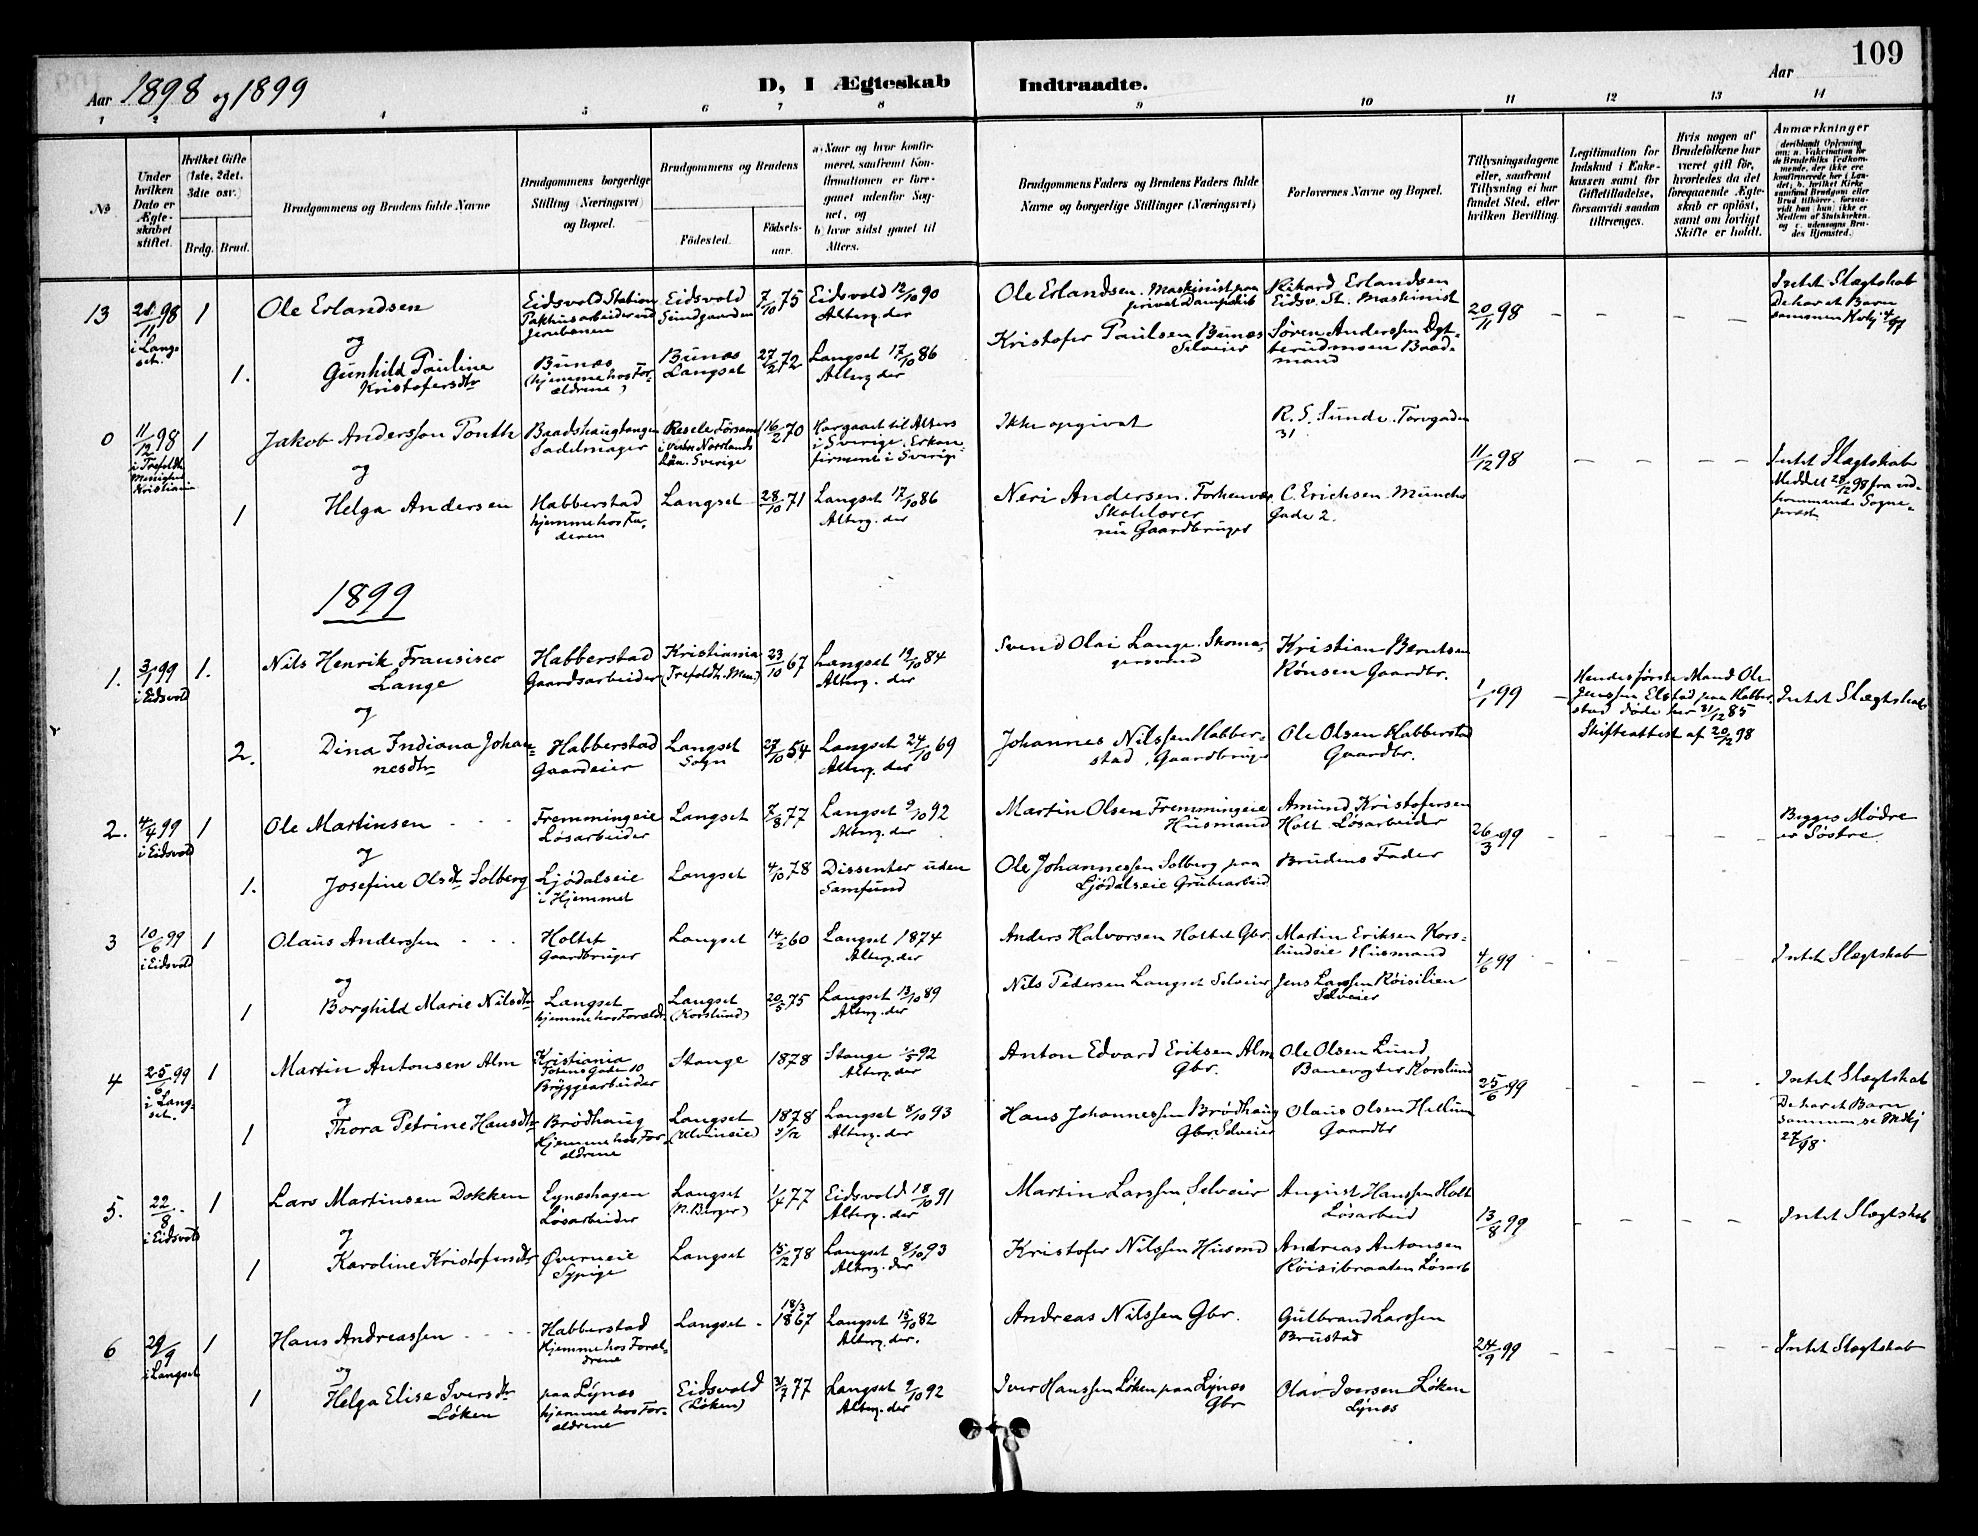 109
Aar 1898 og 1899
D, I Ægteskab Indtraadte.
Aar
1 2 3 4 5 6 7 8 9 10 11 12 13 14
No
Under hvilken Dato er Ægteskabet stiftet.
Hvilket Gifte (1ste, 2det, 3die osv.)
Brdg. Brud.
Brudgommens og Brudens fulde Navne
Brudgommens borgerlige Stilling (Næringsvei) og Bopæl.
Brudgommens og Brudens
Födested.
Födsels-aar.
a) Naar og hvor konfirmeret, saafremt Konfirmationen er foregaaet udenfor Sognet, og
b) hvor sidst gaaet til Alters.
Brudgommens Faders og Brudens Faders fulde Navne og borgerlige Stillinger (Næringsvei)
Forlovernes Navne og Bopæl.
Tillysningsdagene eller, saafremt Tillysning ei har fundet Sted, efter hvilken Bevilling.
Legitimation for Indskud i Enkekassen samt for Giftetilladelse, forsaavidt saadan tiltrænges.
Hvis nogen af Brudefolkene har været gift för, hvorledes da det foregaaende Ægteskab er oplöst, samt om lovligt Skifte er holdt.
Anmærkninger
13 28/11 98 i Langset. 1
Ole Erlandsen
Eidsvold Station Pakhusarbeider ved Jernbanen
Eidsvold Sundgaarden
7/10 75
Eidsvold 12/10 90 Alterg. der
Ole Erlandsen. Maskinist paa privat Dampskib
Rikard Erlandsen Eidsv. St. Maskinist
20/11 98
Intet Slægtskab
De har et Barn sammen
og
1. Gunhild Pauline Kristofersdtr
Bunæs (hjemme hos Forældrene)
Bunæs Langset
27/2 72
Langset 17/10 86 Alterg der
Kristofer Paulsen Bunæs Selveier
Søren Anderssen
0 11/12 98 1
Jakob Andersson Ponth
Baadshaugtangen Sadelmager
i Vester Norrlands Län. Sverige
16/2 70
Har gaaet til Alters i Sverige. Er konfirmeret i Sverige
Ikke opgivet
R. S. Sunde. Torvgaden 31.
11/12 98
Intet Slægtskab
Meddelt 28/12 98 fra vedkommende Sogneprest
og
1 Helga Andersen
Habberstad hjemme hos Faderen
Langset
28/10 71
Langset 17/10 86 Alterg. der
Neri Andersen. Forhenvær Skolelærer nu Gaardbruger
C. Erichsen. Munchs Gade 2.
1899
1. 3/1 99 i Eidsvold 1.
Nils Henrik Fransisco Lange
Habberstad Gaardsarbeider
Kristiania (Trefoldh. Men.)
23/10 67
Langset 19/10 84 Alterg. der
Svend Olai Lange. Skomagersvend
Kristian Berntsen Rönsen Gaardbr.
1/1 99
Hendes første Mand Ole Jenssen Elstad paa Habberstad døde her 31/12 85
Skifteattest af 20/12 98
Intet Slægtskab
og
2. Dina Indiana Johannesdtr
Habberstad Gaardeier
Langset Sogn
27/10 54
Langset 24/10 69 Alterg. der
Johannes Nilssen Habberstad, Gaardbruger
Ole Olsen Habberstad Gaardbr.
2. 4/4 99 i Eidsvold 1
Ole Martinsen
Fremmingeie Løsarbeider
Langset
7/8 77
Langset 9/10 92 Alterg. der
Martin Olsen Fremmingeie Husmand
Amund Kristofersen Holt Løsarbeider
26/3 99
Begges Mødre er Søstre
og
1. Josefine Olsdtr Solberg
Ljødalseie i Hjemmet
Langset
4/10 78
Dissenter uden Samfund
Ole Johannessen Solberg paa Ljødalseie Grubearbeid
Brudens Fader
3 10/6 99 i Eidsvold 1
Olaus Anderssen
Holtet Gaardbruger
Langset
14/2 60
Langset 1874 Alterg. der
Anders Halvorsen Holtet Gbr.
Martin Eriksen Korslundeie Husmand
4/6 99
Intet Slægtskab
og
1 Borghild Marie Nilsdtr
Langset hjemme hos Forældr.
Langset (Korslund)
20/5 75
Langset 13/10 89 Alterg. der
Nils Pedersen Langset Selveier
Jens Larssen Røisilien Selveier
4 25/6 99 i Langset. 1
Martin Antonsen Alm
Kristiania Totens Gaden 10 Bryggearbeider
Stange
1878
Stange 92 Alterg. der
Anton Edvard Eriksen Alm Gbr.
Ole Olsen Lund Banevogter Korslund
25/6 99
Intet Slægtskab
De har et Barn sammen
og
1 Thora Petrine Hansdtr
Brødhaug Hjemme hos Forældrene
Langset (Ulvineie)
1878 9/12
Langset 8/10 93 Alterg. der
Hans Johannessen Brødhaug Gbr. Selveier
Olaus Olsen Hellum Gaardbr
5. 22/8 i Eidsvold 1
Lars Martinsen Dokken
Lynæshagen Løsarbeider
Langset (N. Berger)
1/4 77
Eidsvold 18/10 91 Alterg. der
Martin Larssen Selveier
August Hanssen Holt Løsarbeid
13/8 99
Intet Slægtskab
og
1 Karoline Kristofersdtr
Øverneie Sypige
Langset
15/12 78
Langset 8/10 93 Alterg. der
Kristofer Nilssen Husmd
Andreas Antonsen Røisibraaten Løsarb
6 29/9 i Langset 1
Hans Andreassen
Habberstad Hjemme hos Forældrene
Langset.
18/3 1867
Langset 15/10 82 Alterg. der.
Andreas Nilssen Gbr.
Gulbrand Larssen Brustad
24/9 99
Intet Slægtskab
og
1 Helga Elise Iversdtr Løken
paa Lynæs hjemme hos Forældrene
Eidsvold (Løken)
31/7 77
Langset 9/10 92 Alterg. der
Iver Hanssen Løken paa Lynæs Gbr
Olav Iversen Løken Lynæs